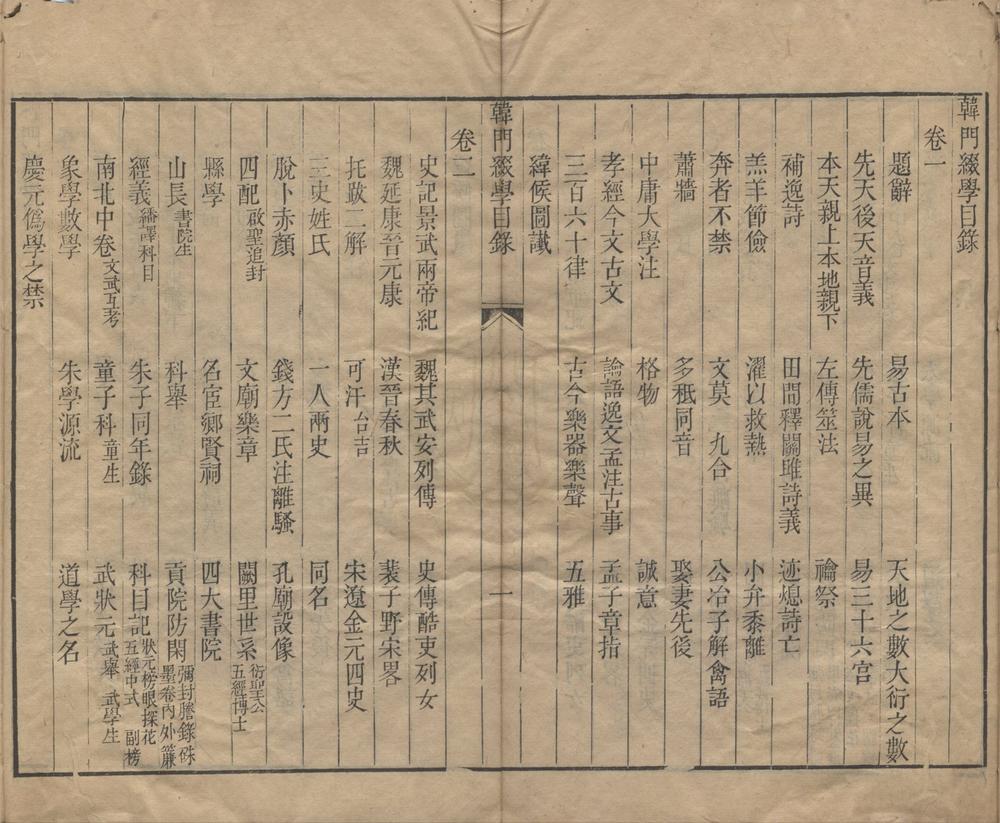 韓門綴學目錄
卷一
題辭　易古本　天地之數大衍之數
先天後天音義　先儒說易之異　易三十六宮
本天親上本地親下　左傳筮法　禴祭
補逸詩　田間釋關雎詩義　迹熄詩亡
羔羊節儉　濯以救熱　小弁黍離
奔者不禁　文莫　九合　公冶子解禽語
蕭牆　多秪同音　娶妻先後
中庸大學注　格物　誠意
孝經今文古文　論語逸文孟注古事　孟子章指
三百六十律　古今樂器樂聲　五雅
緯候圖讖
韓門綴學目錄　一
卷二
史記景武兩帝紀　魏其武安列傳　史傳酷吏列女
魏延康晉元康　漢晉春秋　裴子野宋畧
托跋二解　可汗台吉　宋遼金元四史
三史姓氏　一人兩史　同名
脫卜赤顏　錢方二氏注離騷　孔廟設像
四配啟聖追封　文廟樂章　闕里世系衍聖公五經博士
縣學　名宦鄉賢祠　四大書院
山長書院生　科舉　貢院防閑彌封謄錄硃墨卷內外簾
經義繙譯科目　朱子同年錄　科目記狀元榜眼探花五經中式　副榜
南北中卷文武互考　童子科童生　武狀元武舉　武學生
象學數學　朱學源流　道學之名
慶元僞學之禁